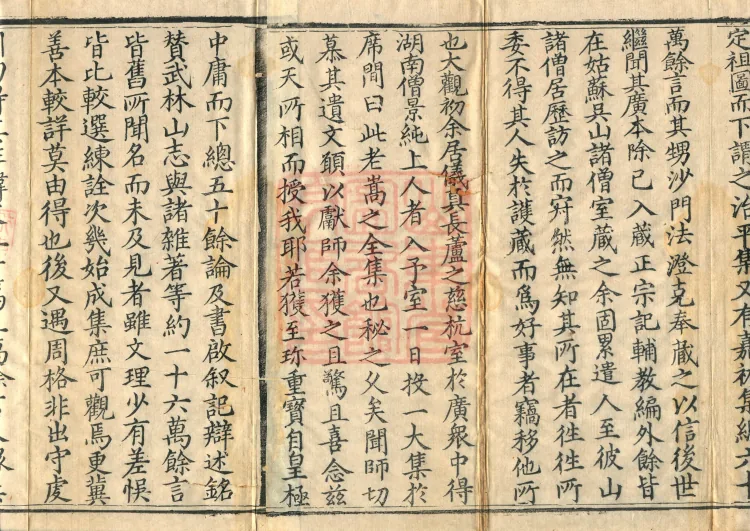 定祖圖而下謂之治平集又有嘉祐集總六十
萬餘言而其甥沙門法澄克奉藏之以信後世
繼聞其廣本除已入藏正宗記輔教編外餘皆
在姑蘇吳山諸僧室藏之余固累遣人至彼山
諸僧居歷訪之而寂然無知其所在者徃徃所
委不得其人失於護藏而為好事者竊移他所
也大觀初余居儀真長蘆之慈杭室於廣衆中得
湖南僧景純上人者入予室一日投一大集於
席間曰此老嵩之全集也秘之久矣聞師切
慕其遺文願以獻師余獲之且驚且喜念兹
或天所相而授我耶若獲至珎重寶自皇極
中庸而下總五十餘論及書啟叙記辯述銘
賛武林山志與諸雜著等約一十六萬餘言
皆舊所聞名而未及見者雖文理少有差悞
皆比較選練詮次幾始成集庶可觀焉更冀
善本較詳莫由得也後又遇周格非出守虔